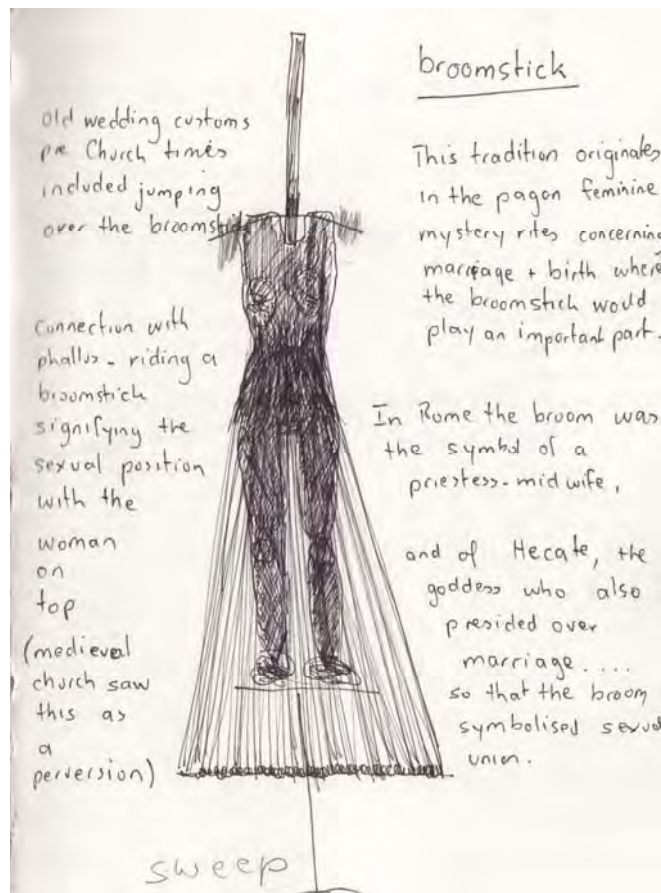 broomstick
Old wedding customs
pre Church times
included jumping
over the broomstick
Connection with
phallus - riding a
broomstick
signifying the
sexual position
with the
woman
on
top
(medieval
church saw
this as
a
perversion)
This tradition originates
in the pagan feminine
mystery rites concerning
marriage + birth where
the broomstick would
play an important part.
In Rome the broom was
the symbol of a
priestess-midwife,
and of Hecate, the
goddess who also
presided over
marriage....
so that the broom
symbolised sexual
union.
sweep